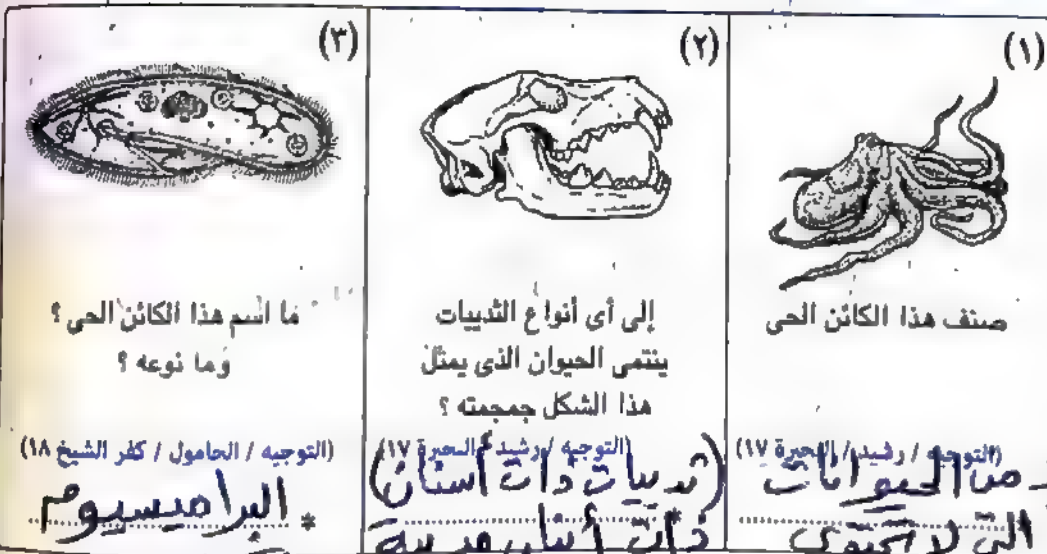 (١)
صنف هذا الكائن الحى
(التوجيه / رشيد / البحيرة ١٧)
من الحيوانات
التى لا تحتوى
(٢)
إلى أى أنواع الثدييات
ينتمى الحيوان الذى يمثل
هذا الشكل جمجمته ؟
(التوجيه / رشيد / البحيرة ١٧)
(ثدييات ذات أسنان)
ذات أنياب مدببة
(٣)
ما اسم هذا الكائن الحى ؟
وما نوعه ؟
(التوجيه / الحامول / كفر الشيخ ١٨)
* البراميسيوم